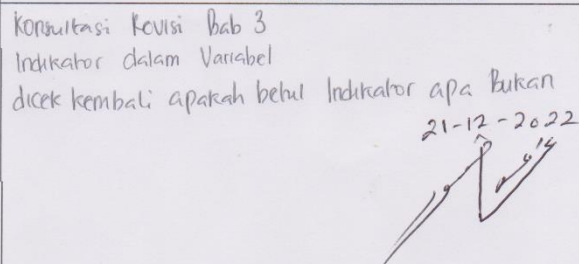 Konsultasi Revisi Bab 3
Indikator dalam Variabel
dicek kembali apakah betul Indikator apa Bukan
21-12-2022